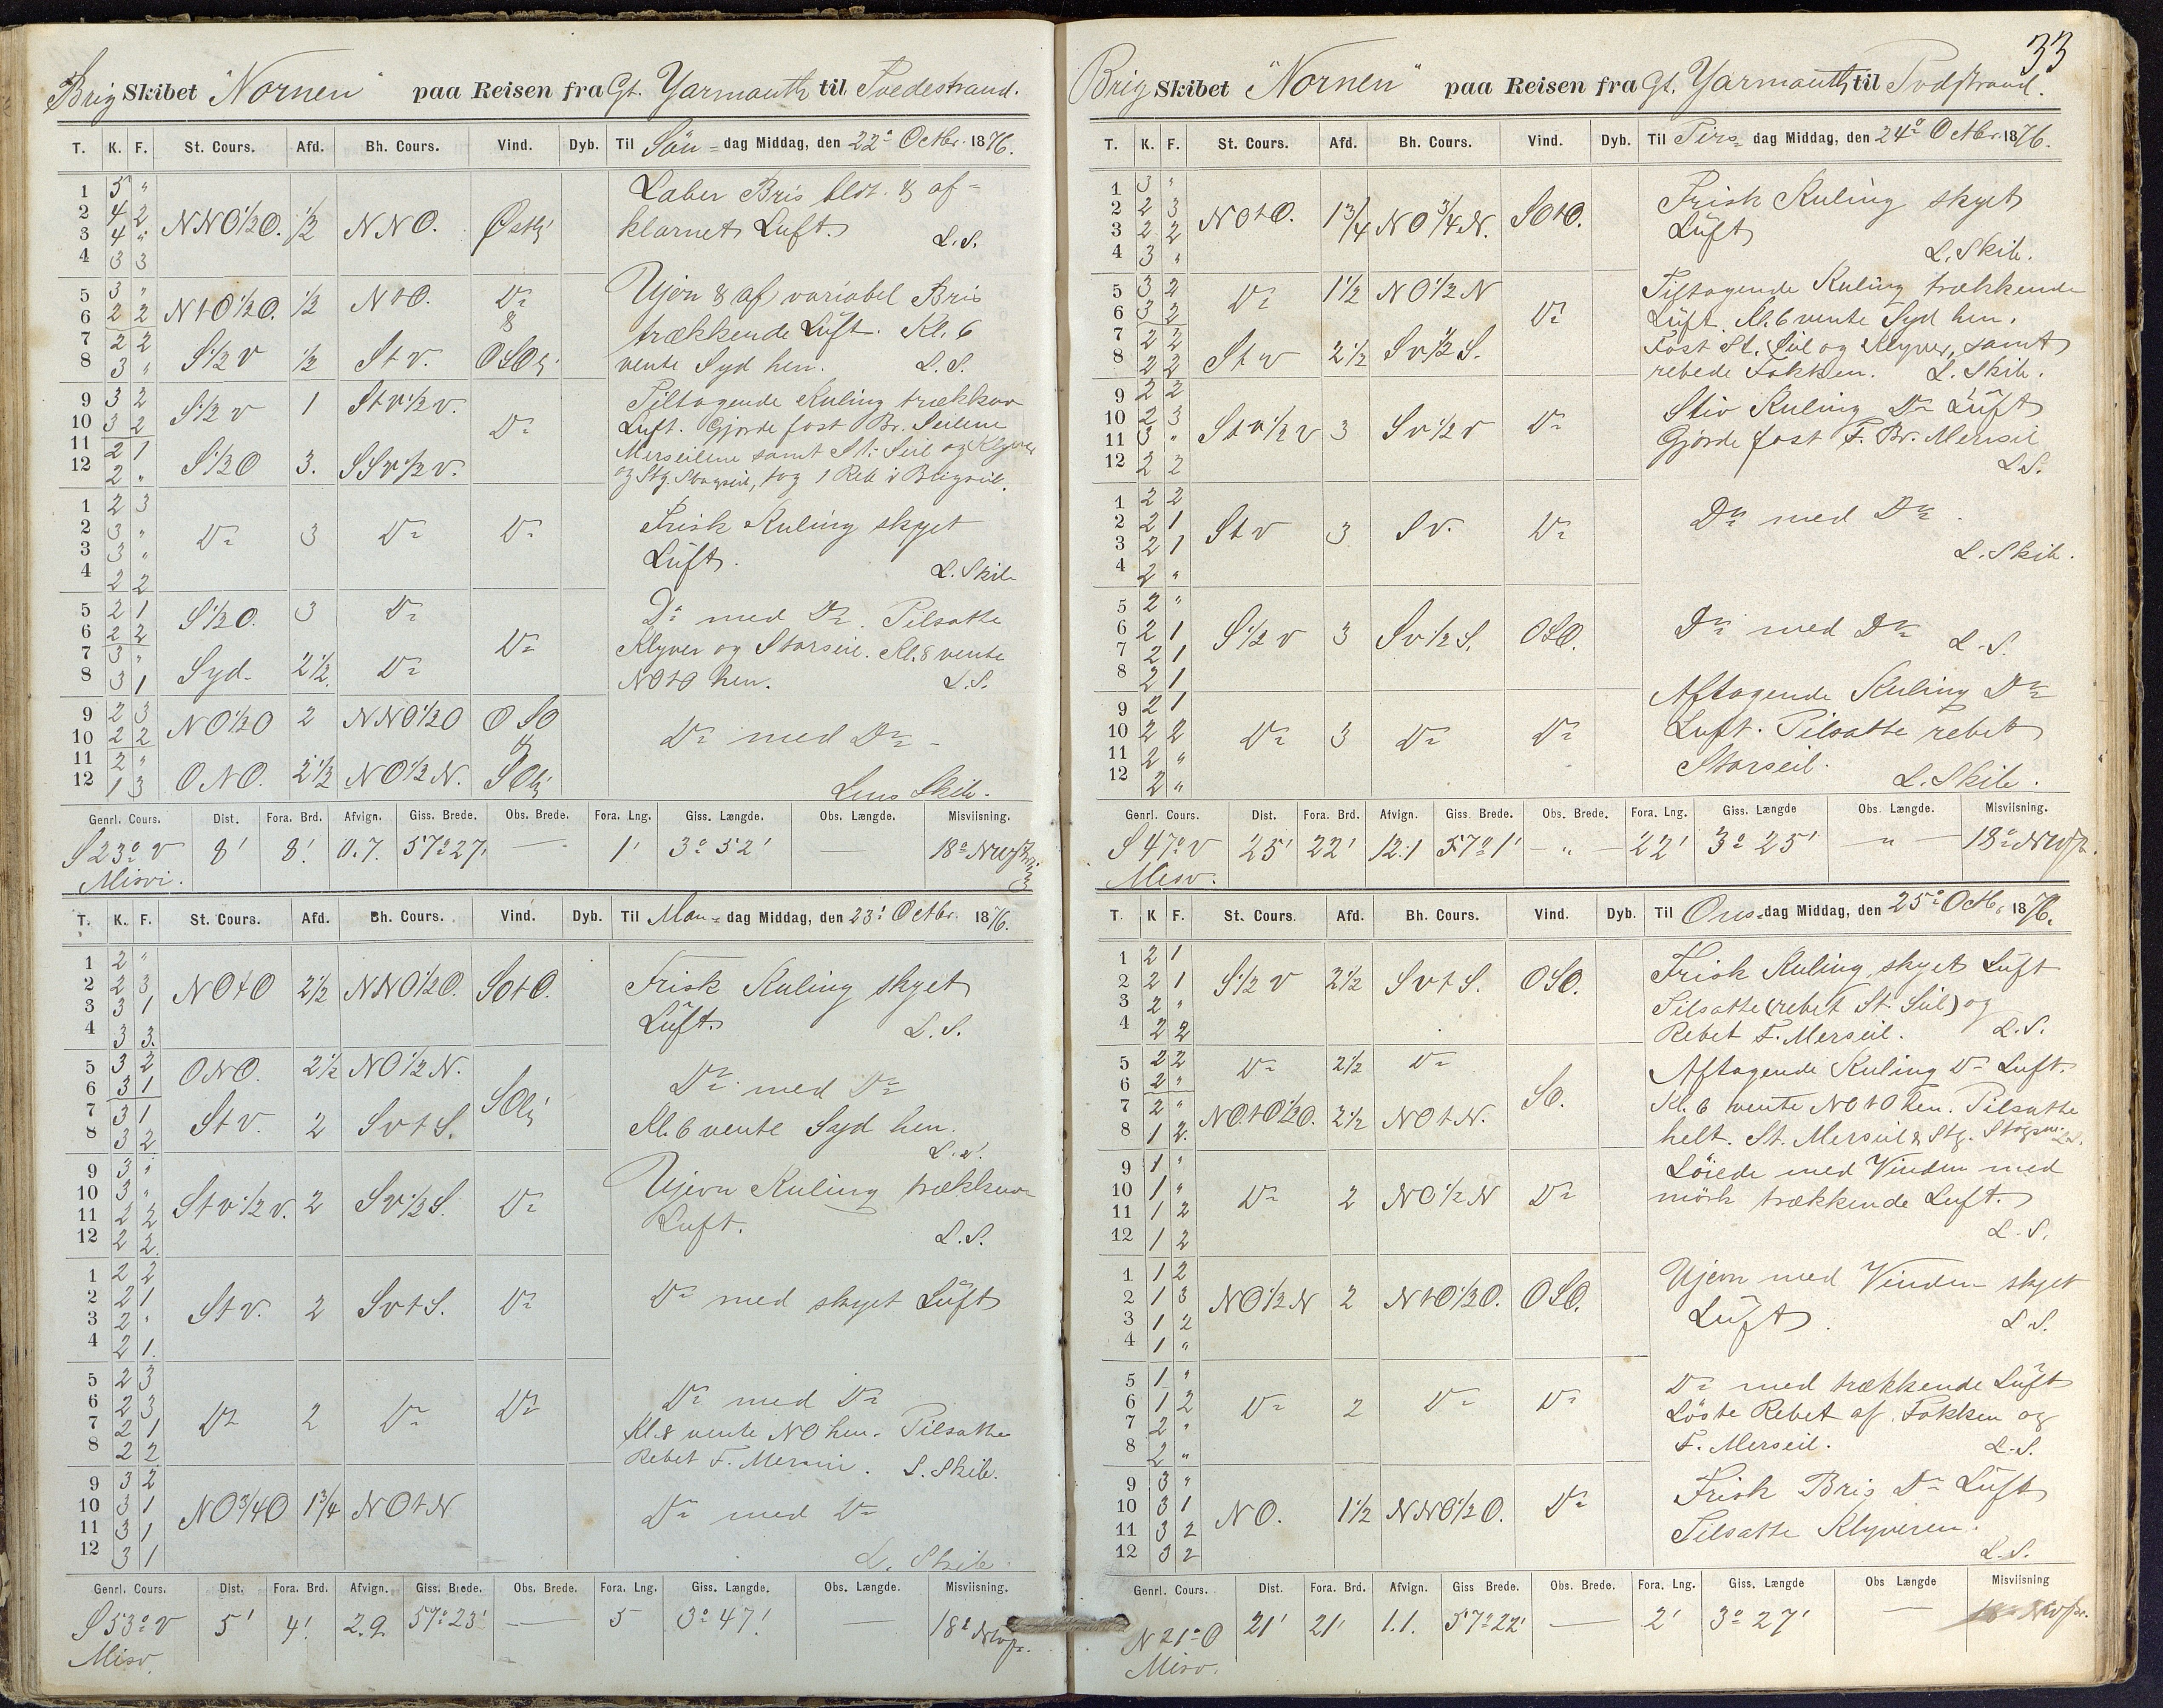 Brig Skibet "Nornen" paa Reisen fra Gt. Yarmouth til Tvedestrand.
T. K. F. St. Cours. Afd. Bh. Cours. Vind. Dyb. Til Sön= dag Middag, den 22de Octbr. 1876.
1 5 "
2 4 2 NNO½O. ½ NNO. Østlg
3 4 "
4 3 3
Laber Bris bldt. & af=
klarnet Luft.
L.S.
5 3 " NtO½O. ½ NtO. Do
6 2 2 &
7 2 2 S½V ½ StV. OSOlg
8 3 "
Ujevn & af variabel Bris
trækkende Luft. Kl. 6
vente Syd hen. L.S.
9 3 2 S½V 1 StV½V. Do
10 3 2
11 2 1 S½O 3. SSV½V.
12 2 "
Tiltagende Kuling trækkende
Luft. Gjorde fast Br. Seilene
Merseilene samt St. Seil og Klyver
og Stg. Stagseil, tog 1 Reb i Brigseil.
1 2 3
2 3 " Do 3 Do Do
3 3 "
4 2 2
Frisk Kuling skyet
Luft.
L. Skib
5 2 1 S½O. 3 Do
6 2 2 Do
7 3 " Syd. 2½. Do
8 3 1
Do med Do. Tilsatte
Klyver og Storseil. Kl. 8 vente
NOtO hen. L.S.
9 2 3 NO½O 2 NNO½O OSO
10 2 2 &
11 2 " ONO. 2½ NO½N. SOlg
12 1 3
Do med Do
Lens Skib.
Genrl. Cours. Dist. Fora. Brd. Afvign. Giss. Brede. Obs. Brede. Fora. Lng. Giss. Længde. Obs. Længde. Misviisning.
S 23° V 8' 8' 0.7. 57° 27' — 1' 3° 52' — 18°
Misvi.
T. K. F. St. Cours. Afd. Bh. Cours. Vind. Dyb. Til Man= dag Middag, den 23' Octbr. 1876.
1 2 "
2 2 3 NOtO 2½ NNO½O. SOtO.
3 3 1
4 3 3.
Frisk Kuling skyet
Luft. L.S.
5 3 2 ONO. 2½ NO½N.
6 3 1 SOlg
7 3 1 StV. 2 SVtS.
8 3 2
Do med Do
Kl. 6 vente Syd hen.
L.S.
9 3 "
10 3 " StV½V. 2 SV½S. Do
11 2 2
12 2 2.
Ujevn Kuling trækkende
Luft.
L.S.
1 2 2
2 2 1 StV. 2 SVtS. Do
3 2 "
4 2 1.
Do med skyet Luft
5 2 3
6 2 3 Do 2 Do Do
7 2 1
8 2 2
Do med Do
Kl. 8 vente NO hen. Tilsatte
Rebet F. Merseil. L. Skib.
9 3 2
10 3 1 NO¾O 1¾ NOtN
11 3 1
12 3 1
Do med Do
L. Skib
Genrl. Cours. Dist. Fora. Brd. Afvign. Giss. Brede. Obs. Brede. Fora. Lng. Giss. Længde. Obs. Længde. Misviisning.
S 53° V 5' 4' 2.9. 57° 23' — 5 3° 47' — 18°
Misv.
33
Brig Skibet "Nornen" paa Reisen fra Gt. Yarmouth til Tvedstrand.
T. K. F. St. Cours. Afd. Bh. Cours. Vind. Dyb. Til Tirs= dag Middag, den 24de Octbr. 1876.
1 3 "
2 2 3 NOtO. 1¾ NO¾N. SOtO.
3 2 2
4 3 "
Frisk Kuling skyet
Luft
L. Skib.
5 3 2 Do 1½ NO½N
6 3 2 Do
7 2 2 StV 2½ SV½S.
8 2 2
Tiltagende Kuling trækkende
Luft. Kl. 6 vente Syd hen.
Fast St. Seil og Klyver, samt
rebede Fokken. L. Skib.
9 2 2
10 2 3 StV½V 3 SV½V Do
11 3 "
12 2 2
Stiv Kuling Do Luft
Gjorde fast F. Br. Merseil
L.S.
1 2 2
2 2 1 StV 3 SV. Do
3 2 1
4 2 "
Do med Do.
L. Skib.
5 2 "
6 2 1 S½V 3 SV½S. OSO.
7 2 1
8 2 1
Do med Do L.S.
9 2 1
10 2 2 Do 3 Do Do
11 2 "
12 2 "
Aftagende Kuling Do
Luft. Tilsatte rebet
Storseil.
L. Skib.
Genrl. Cours. Dist. Fora. Brd. Afvign. Giss. Brede. Obs. Brede. Fora. Lng. Giss. Længde Obs. Længde. Misviisning.
S 47° V 25' 22' 12.1 57° 1' — " — 22' 3° 25' — " — 18°
Misv.
T. K F. St. Cours. Afd. Bh. Cours. Vind. Dyb. Til Ons= dag Middag, den 25de Octb. 1876.
1 2 1
2 2 1 S½V 2½ SVtS. OSO.
3 2 "
4 2 2
Frisk Kuling skyet Luft
Tilsatte (rebet St. Seil) og
Rebet F. Merseil. L.S.
5 2 2 Do 2½ Do
6 2 " SO.
7 2 " NOtO½O. 2½ NOtN.
8 1 2.
Aftagende Kuling Do Luft.
Kl. 6 vente NOtO hen. Tilsatte
helt. St. Merseil & Stg. Stagseil L.S.
9 1 "
10 1 " Do 2 NO½N Do
11 1 2
12 1 2
Löiede med Vinden med
mörk trækkende Luft.
L.S.
1 1 2
2 1 3 NO½N 2 NtO½O. OSO.
3 1 2
4 1 "
Ujevn med Vinden skyet
Luft. L.S.
5 1 "
6 1 2 Do 2 Do Do
7 2 "
8 2 "
Do med trækkende Luft
Löste Rebet af Fokken og
F. Merseil. L.S.
9 3 "
10 3 1 NO. 1½ NNO½O. Do
11 3 2
12 3 2
Frisk Bris Do Luft
Tilsatte Klyveren.
L.S.
Genrl. Cours. Dist. Fora. Brd. Afvign. Giss Brede. Obs. Brede. Fora. Lng. Giss. Længde Obs Længde Misviisning
N 21° O 21' 21' 1.1. 57° 22' — 2' 3° 27' — 18°
Misv.